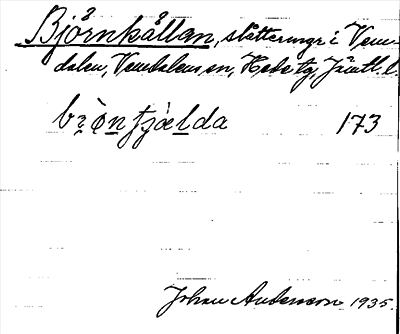 Björnkällan, slåtterängr i Vem-
dalen, Vemdalens sn, Hede tg, Jämtl. l.
173
Johan Anderson 1935.